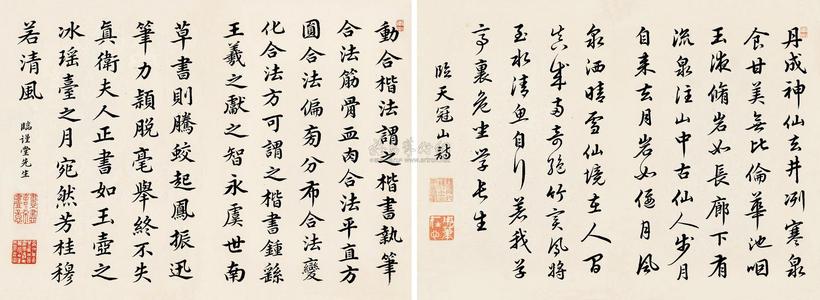 丹成神仙去井冽寒泉
食甘美無比倫華池咽
玉液脩岩如長廊下有
流泉注山中古仙人步月
自来去月岩如偃月風
泉洒晴雪仙境在人間
真成兩奇絕竹實鳳將
至水清魚自行着我草
亭裏危坐學長生
臨天冠山詩
動合楷法謂之楷書執筆
合法筋骨血肉合法平直方
圓合法偏旁分布合法變
化合法方可謂之楷書鍾繇
王羲之獻之智永虞世南
草書則騰蛟起鳳振迅
筆力穎脫毫舉終不失
眞衛夫人正書如玉壺之
冰瑤臺之月宛然芳桂穆
若清風
臨謹堂先生